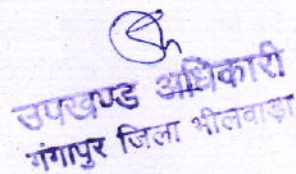 उपखण्ड अधिकारी
गंगापुर जिला भीलवाड़ा